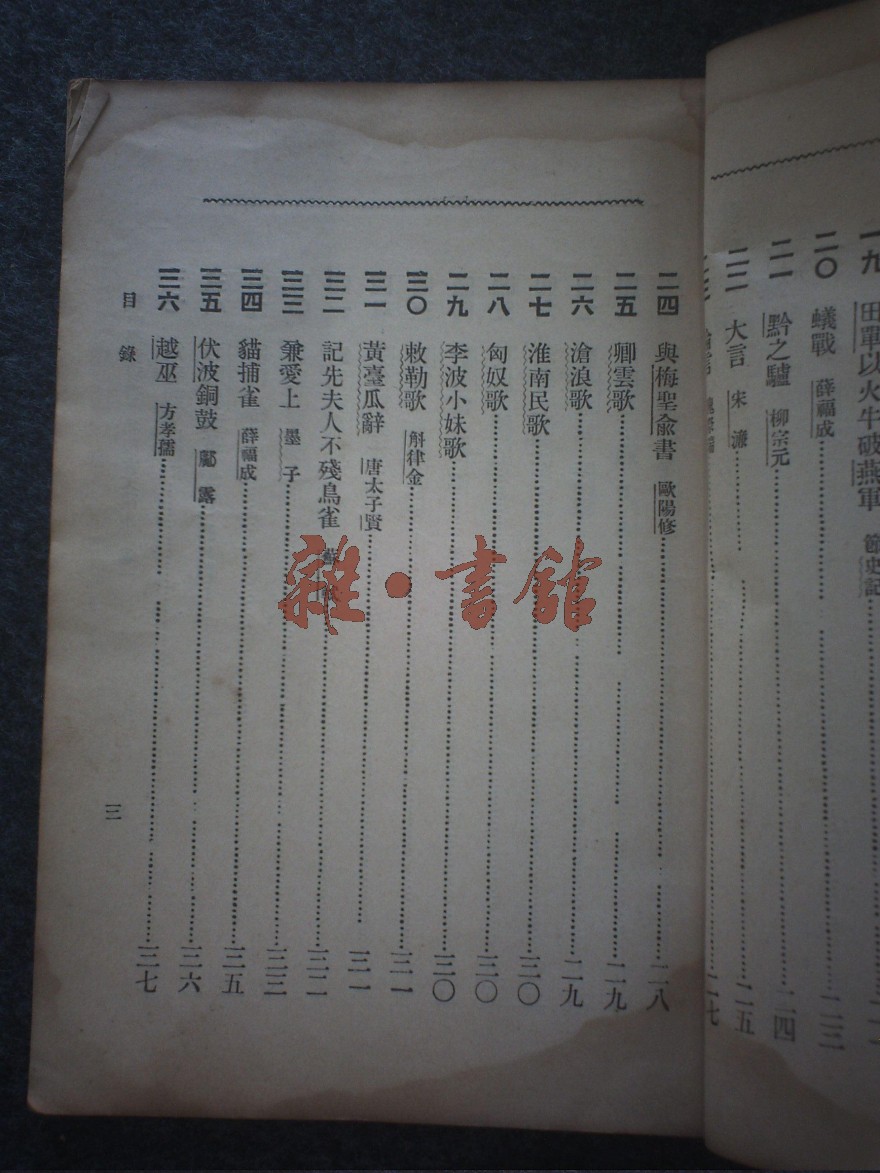 一九 田單以火牛破燕軍 節史記
二〇 蟻戰 薛福成 二三
二一 黔之驢 柳宗元 二四
二二 大言 宋濂 二五
二七
二四 與梅聖俞書 歐陽修 二八
二五 卿雲歌 二九
二六 滄浪歌 二九
二七 淮南民歌 三〇
二八 匈奴歌 三〇
二九 李波小妹歌 三〇
三〇 敕勒歌 斛律金 三一
三一 黃臺瓜辭 唐太子賢 三一
三二 記先夫人不殘鳥雀 蘇 三二
三三 兼愛上 墨子 三三
三四 貓捕雀 薛福成 三五
三五 伏波銅鼓 鄺露 三六
三六 越巫 方孝孺 三七
目錄
三
雜·書館